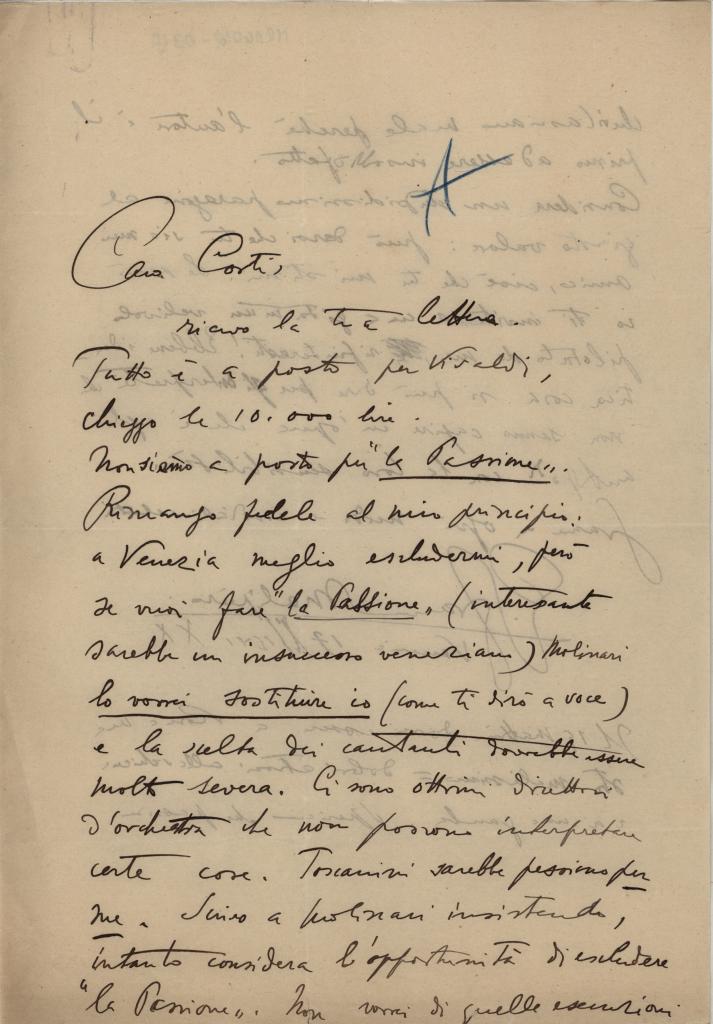 A
Caro Corti,
ricevo la tua lettera.
Tutto è a posto per Vivaldi,
chieggo le 10.000 lire.
Non siamo a posto per "la Passione".
Rimango fedele al mio principio:
a Venezia meglio escludermi, però
se vuoi fare "la Passione" (interessante
sarebbe un insuccesso veneziano) Molinari
lo vorrei sostituire io (come ti dirò a voce)
e la scelta dei cantanti dovrebbe essere
molto severa. Ci sono ottimi direttori
d'orchestra che non possono interpretare
certe cose. Toscanini sarebbe pessimo per
me. Scrivo a Molinari insistendo,
intanto considera l'opportunità di escludere
"la Passione". Non vorrei di quelle esecuzioni